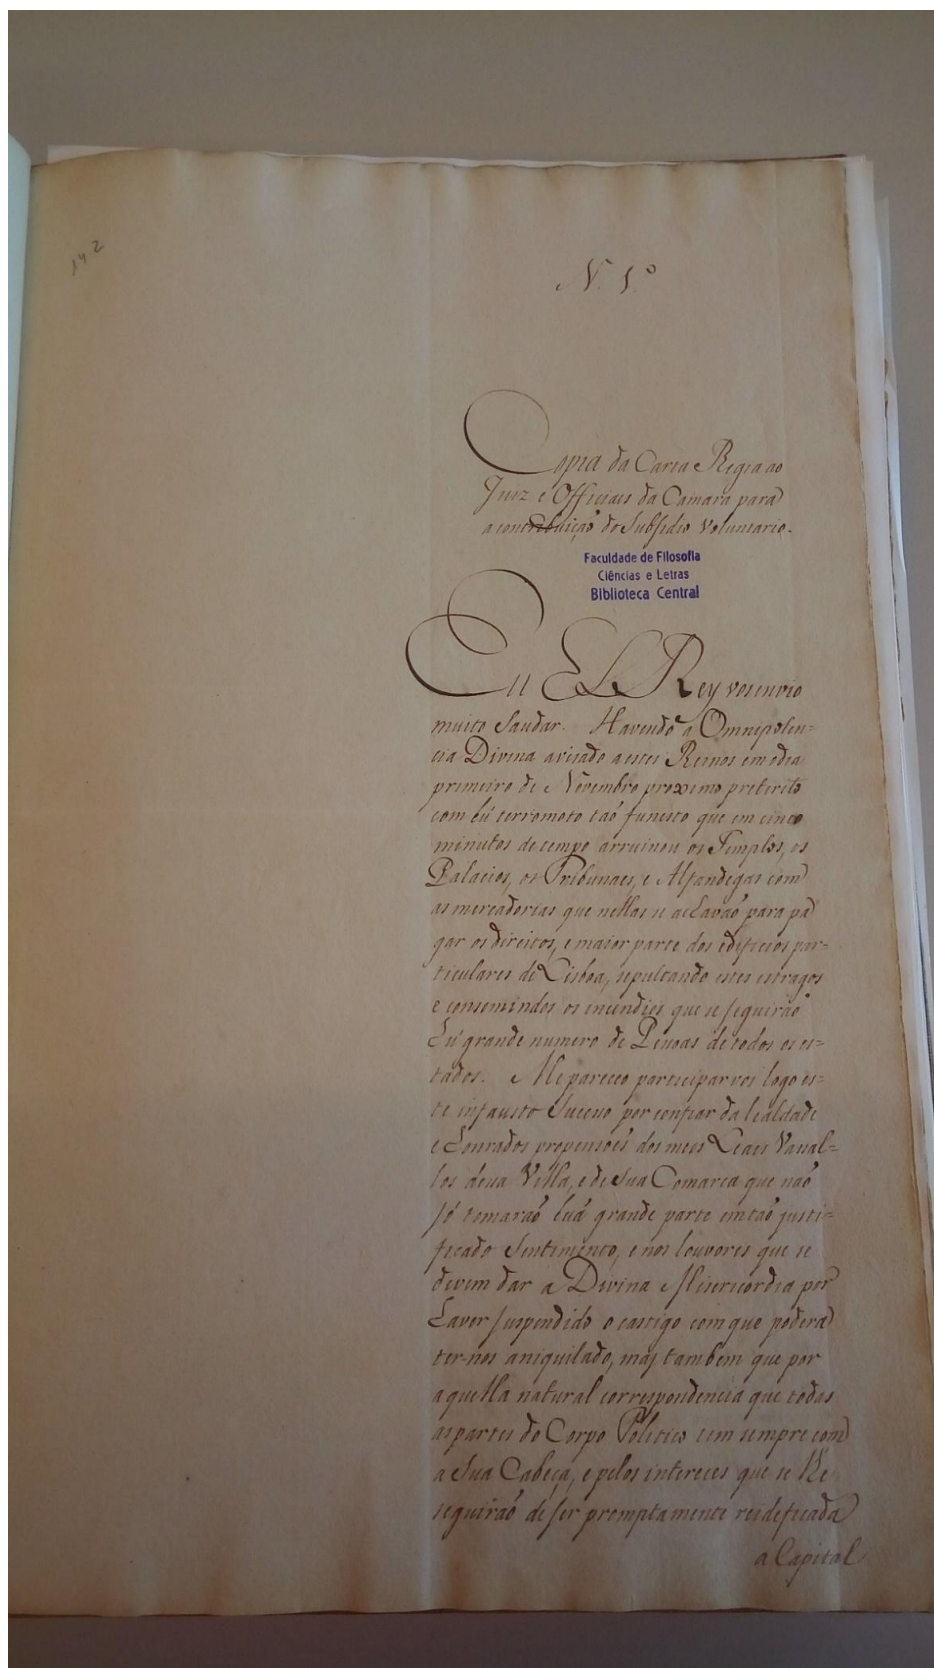 142
N. 1.º
Copia da Carta Regia ao
Juiz e Officiais da Camara para
a contribuição do Subsidio Voluntario.
Faculdade de Filosofia
Ciências e Letras
Biblioteca Central
Eu El Rey vos envio
muito Saudar. Havendo a Omnipoten=
cia Divina avisado a estes Reinos em o dia
primeiro de Novembro proximo preterito
com hú terremoto taó funesto que em cinco
minutos de tempo arruinou os Templos, os
Palacios, os Tribunaes, e Alfandegas com
as mercadorias que nellas se achavaó para pa
gar os direitos, e maior parte dos edificios par=
ticulares de Lisboa, sepultando estes estragos
e consumindos os incendios que se seguiraó
hú grande numero de Pessoas de todos os es=
tados. Me pareceo participarvos logo es=
te infausto Sucesso por confiar da lealdade
e honrados propensoés dos meus Leaes Vassal=
los dessa Villa, e de Sua Comarca que naó
só tomaraó huá grande parte em taó justi=
ficado Sentimento, e nos louvores que se
devem dar a Divina Misericordia por
haver suspendido o castigo com que podera
ter-nos aniquilado, mas tambem que por
aquella natural correspondencia que todas
as partes do Corpo Politico tem sempre com
a Sua Cabeça, e pelos interesses que se lhe
seguiraó de ser promptamente reidificada
a Capital